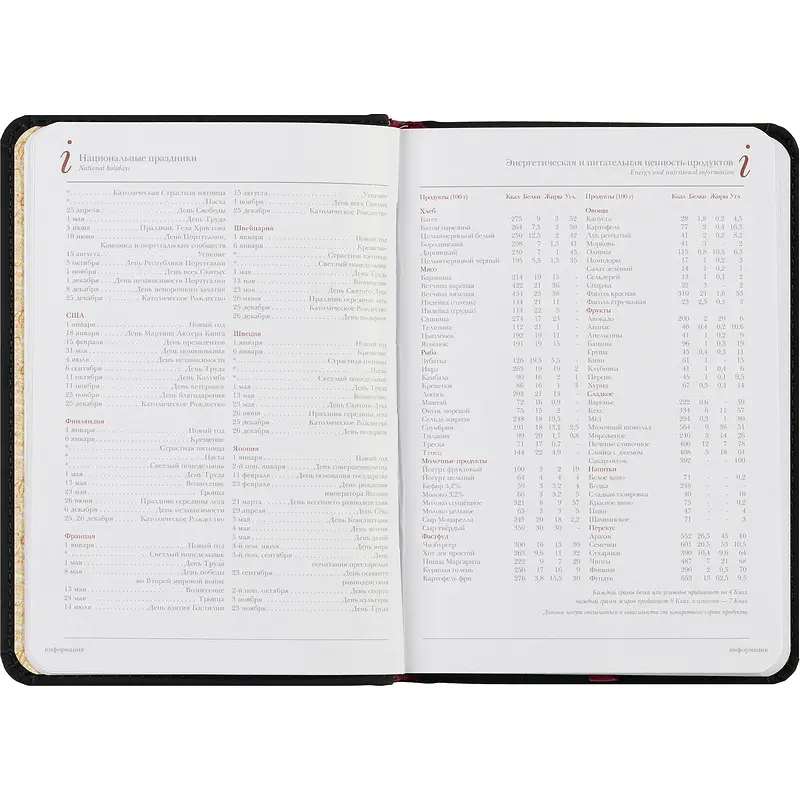 Национальные праздники
National holidays
* Католическая Страстная пятница
* Пасха
25 апреля День Свободы
1 мая День Труда
3 июня Праздник Тела Христова
10 июня День Португалии,
Камоэнса и португальских сообществ
15 августа Успение
5 октября День Республики Португалии
1 ноября День всех Святых
1 декабря День независимости Португалии
8 декабря День непорочного зачатия
25 декабря Католическое Рождество
США
1 января Новый год
18 января День Мартина Лютера Кинга
15 февраля День президентов
31 мая День поминовения
4 июля День независимости
6 сентября День Труда
11 октября День Колумба
11 ноября День ветеранов
25 ноября День благодарения
25 декабря Католическое Рождество
Финляндия
1 января Новый год
6 января Крещение
* Страстная пятница
* Пасха
* Светлый понедельник
1 мая День Труда
13 мая Вознесение
23 мая Троица
26 июня Праздник середины лета
6 декабря День независимости
25, 26 декабря Католическое Рождество
Франция
1 января Новый год
* Светлый понедельник
1 мая День Труда
8 мая День победы
во Второй мировой войне
13 мая Вознесение
24 мая Троица
14 июля День взятия Бастилии
15 августа Успение
1 ноября День всех Святых
25 декабря Католическое Рождество
Швейцария
1 января Новый год
6 января Крещение
* Страстная пятница
* Светлый понедельник
1 мая День Труда
13 мая Вознесение
23 мая День Святого Духа
26 июня Праздник середины лета
25 декабря Католическое Рождество
26 декабря День подарков
Швеция
1 января Новый год
6 января Крещение
* Страстная пятница
* Пасха
* Светлый понедельник
1 мая День Труда
13 мая Вознесение
23 мая День Святого Духа
26 июня Праздник середины лета
25 декабря Католическое Рождество
26 декабря День подарков
Япония
1 января Новый год
2-й пон. января День совершеннолетия
11 февраля День основания государства
23 февраля День рождения
императора Японии
21 марта День весеннего равноденствия
29 апреля День Сёва
3 мая День Конституции
4 мая День зелени
5 мая День детей
3-й пон. июля День моря
3-й пон. сентября День
почитания престарелых
23 сентября День осеннего
равноденствия
2-й пон. октября День спорта
3 ноября День культуры
23 ноября День Труда
информация
Энергетическая и питательная ценность продуктов
Energy and nutritional information
Продукты (100 г) Ккал Белки Жиры Угл.
Хлеб
Багет 275 9 3 52
Батон нарезной 264 7,5 3 50
Цельнозерновой белый 250 12,5 2 42
Бородинский 208 7 1,5 41
Дарницкий 230 7 1 45
Цельнозерновой чёрный 195 5,5 1,5 35
Мясо
Баранина 214 19 15 -
Ветчина варёная 422 21 36 -
Ветчина вяленая 434 23 38 -
Индейка (голень) 144 21 11 -
Индейка (грудка) 114 22 5 -
Свинина 274 17 23 -
Телятина 112 21 1 -
Цыплёнок 192 19 11 -
Ягнёнок 191 19 15 -
Рыба
Зубатка 126 19,5 5,5 -
Икра 263 19 19 2
Камбала 90 16 2 1
Креветки 86 16 1 3
Лосось 203 21 13 -
Минтай 72 16 0,9 -
Окунь морской 75 15 2 -
Сельдь жирная 248 18 19,5 -
Скумбрия 191 18 13,2 2,5
Тилапия 99 20 1,7 0,8
Треска 71 17 0,7 -
Тунец 144 22 4,9 -
Молочные продукты
Йогурт фруктовый 100 3 2 19
Йогурт цельный 64 4 4 4
Кефир 3,2% 59 3 3,2 4
Молоко 3,2% 60 3 3,2 5
Молоко сгущённое 321 8 9 37
Молоко цельное 63 3 3 5
Сыр Моцарелла 245 20 18 2,2
Сыр твёрдый 350 30 30 -
Фастфуд
Чизбургер 300 16 13 30
Хот-дог простой 263 9,6 11 32
Пицца Маргарита 222 9 7 29
Куриная голень 250 17 16 9
Картофель фри 276 3,8 15,5 30
Продукты (100 г) Ккал Белки Жиры Угл.
Овощи
Капуста 28 1,8 0,2 4,5
Картофель 77 2 0,4 16,3
Лук репчатый 41 2 0,2 8,2
Морковь 41 3 - 2
Оливки 115 0,8 10,5 6,3
Помидоры 17 1 0,2 3
Салат зелёный 14 1 0,2 1
Сельдерей 13 1 0,1 2
Спаржа 22 3 - 2
Фасоль красная 310 21 1,6 53
Фасоль стручковая 23 2,5 0,3 3
Фрукты
Авокадо 200 2 20 6
Ананас 46 0,4 0,2 10,6
Апельсины 41 1 0,2 9
Бананы 96 1 0,5 19
Груша 45 0,4 0,3 11
Киви 61 1 - 15
Клубника 41 1 0,4 6
Персик 45 1 0,1 9,5
Хурма 67 0,5 0,4 14
Сладкое
Варенье 222 0,6 - 59
Кекс 334 6 11 57
Мёд 294 0,3 1 80
Молочный шоколад 564 9 38 51
Мороженое 240 5 14 26
Печенье сливочное 406 12 7 78
Слойка с джемом 408 5 18 61
Сахар-песок 392 - - 100
Напитки
Белое вино 71 - - 0,2
Водка 218 - - -
Сладкая газировка 40 - - 10
Красное вино 75 - - 0,2
Пиво 47 - - 4
Шампанское 71 - - 3
Перекус
Арахис 552 26,5 45 10
Семечки 601 20,5 53 10,5
Сухарики 390 10,4 9,6 64
Чипсы 487 7 21 68
Финики 296 2 0,5 70
Фундук 653 13 62,5 9,5
Каждый грамм белка или углеводов прибавляет по 4 Ккал,
каждый грамм жиров прибавляет 9 Ккал, а алкоголя — 7 Ккал.
Данные могут отличаться в зависимости от конкретного сорта продукта
информация